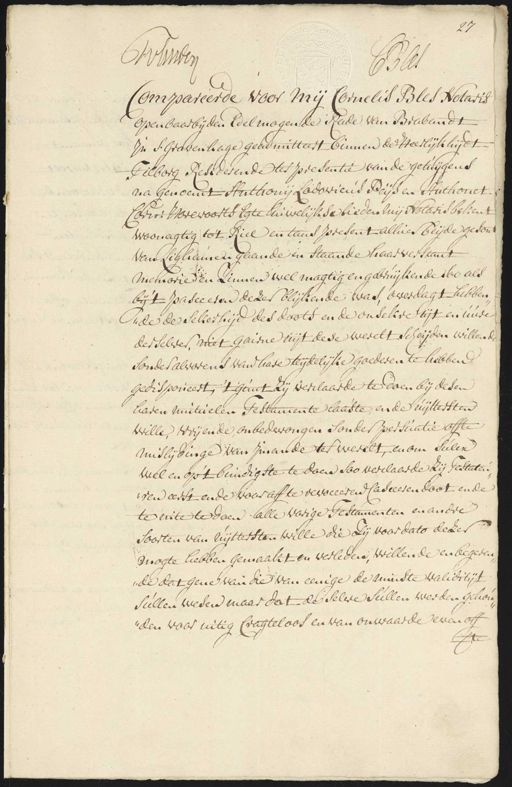 27
Bles
Compareerde voor Mij Cornelis Bles Notaris
openbaar bij den Ed: e mogende Rade van Brabandt
In s Gravenhage geadmitteert binnen de Heerlijkhijt
Tilborg Resideerende ter presentie van de getuijgens
na genoemt Anthonij Lodovicus Buijsen Anthonet
Egte huwelijkse lieden mij Notaris bekent
woonagtig tot Riel en tans present alhier beijde gesont
van Lighamen gaande en staande haar verstant
Memorie en Sinnen wel magtig en gebruijkende soo als
bij't passeeren dezer blijkende was, overdagt hebben
de de sekerhijd des doots en de onsekere tijt en uure
derselver, niet gaarne uijt dese werelt scheijden willende
sonder alvorens van hare tijdelijke goederen te hebben
gedisponeert, 't geint zij verclaarde te doen bij desen
haren mutuelen Testamente laaste ende uijttersten
wille, vrijende onbedwongen sonder persuatie ofte
misleijdinge van jmande ter werelt, en om sulx
wel en op't bundigste te doen soo verclaarde zij Testateu
ren eerst ende vooraff te revoceeren Casseeren doot ende
te niete te doen alle vorige Testamenten en andre
soorten van uijttersten wille die zij voor dato dezer
mogte hebben gemaakt en verleden, willende en begeeren
de dat gene van die van eenige de minste validitijt
sullen wesen maar dat de selve sullen werden gehou
den voor nietig Cragteloos en van onwaarde even off